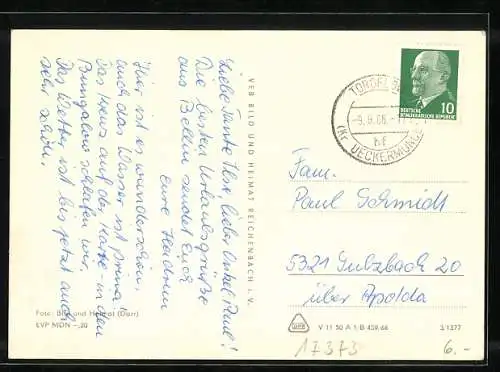 Liebe Tante Ilse, lieber Onkel Paul!
Die besten Urlaubsgrüße
aus Bellin sendet Euch
Eure Heidrun
Hier ist es wunderschön,
auch das Wasser ist prima.
Das Haus auf der Karte in den
Bungalows schlafen wir.
Das Wetter ist bis jetzt auch
sehr schön.
Foto: Bild und Heimat (Darr)
EVP MDN -,20
VEB BILD UND HEIMAT REICHENBACH I. V.
DEUTSCHE
DEMOKRATISCHE REPUBLIK
10
TORGELOW
-9.8.66.
(Kr UECKERMÜNDE)
Fam.
Paul Schmidt
5321 Sulzbach 20
über Apolda
V 11 50 A 1/B 459/66
3/1377
17373
6.-